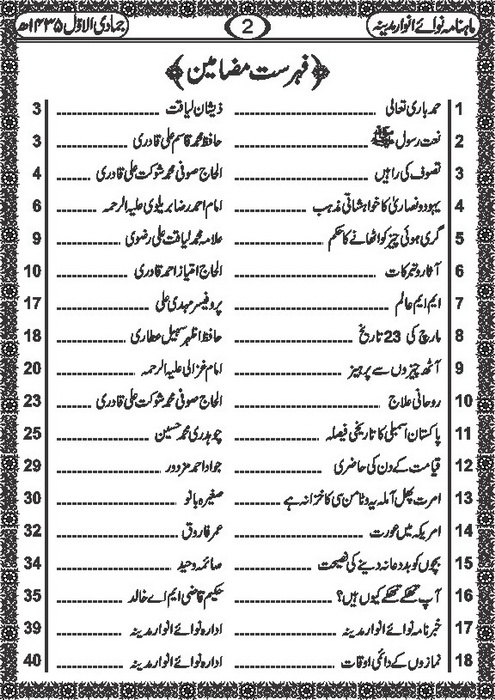 ماہنامہ نوائے انوار مدینہ 2 جمادی الاوّل ۱۴۳۵ھ
﴿فہرست مضامین﴾
1 حمد باری تعالی ذیشان لیاقت 3
2 نعت رسول ﷺ حافظ محمد قاسم علی قادری 3
3 تصوف کی راہیں الحاج صوفی محمد شوکت علی قادری 4
4 یہود و نصاریٰ کا خواہشاتی مذہب امام احمد رضا بریلوی علیہ الرحمہ 6
5 گری ہوئی چیز کو اٹھانے کا حکم علامہ محمد لیاقت علی رضوی 9
6 آثار و تبرکات الحاج امتیاز احمد قادری 10
7 ایم ایم عالم پروفیسر مہدی علی 17
8 مارچ کی 23 تاریخ حافظ اظہر سہیل عطاری 18
9 آٹھ چیزوں سے پرہیز امام غزالی علیہ الرحمہ 20
10 روحانی علاج الحاج صوفی محمد شوکت علی قادری 23
11 پاکستان اسمبلی کا تاریخی فیصلہ چوہدری محمد حسین 25
12 قیامت کے دن کی حاضری جواد احمد مزدور 29
13 امرت پھل آملہ یہ وٹامن سی کا خزانہ ہے صغیرہ بانو 30
14 امریکہ میں عورت عمر فاروق 32
15 بچوں کو بددعا نہ دینے کی نصیحت صائمہ وحید 34
16 آپ تھکے تھکے کیوں ہیں؟ حکیم قاضی ایم اے خالد 35
17 خبرنامہ نوائے انوار مدینہ ادارہ نوائے انوار مدینہ 39
18 نمازوں کے دائمی اوقات ادارہ نوائے انوار مدینہ 40